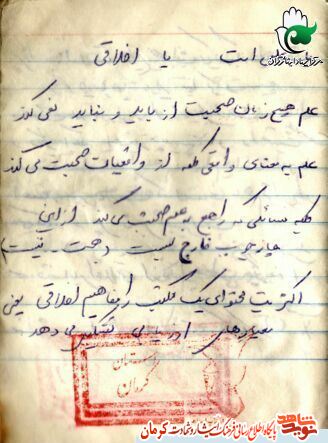 است یا اخلاقی
علم هیچ زمان صحبت از باید و نباید نمی کند
علم به معنای واقعی کلمه از واقعیات صحبت می کند
کلیه مسائلی که راجع به علم صحبت می کند از این
چهارچوب خارج نیست (هست - نیست)
اکثریت محتوای یک مکتب را مفاهیم اخلاقی یعنی
معیارهای ارزیابی تشکیل می دهد
استان
کرمان
نوید شاهد
پایگاه اطلاع رسانی فرهنگ ایثار و شهادت کرمان